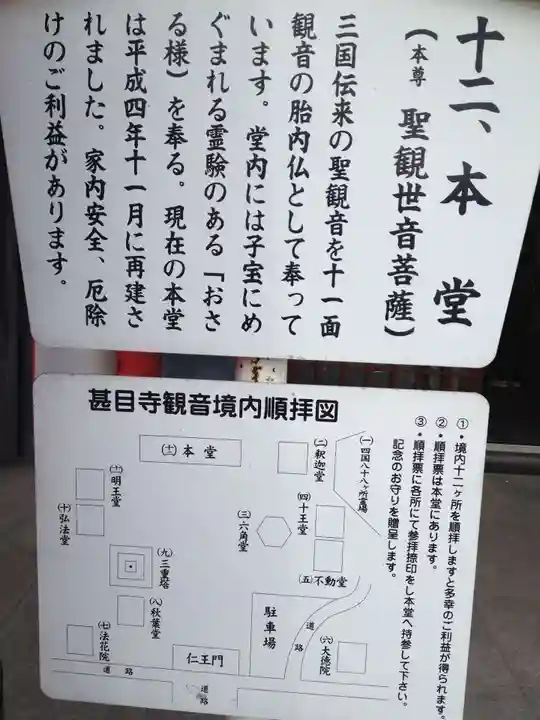 十二、本堂
（本尊 聖観世音菩薩）
三国伝来の聖観音を十一面
観音の胎内仏として奉って
います。堂内には子宝にめ
ぐまれる霊験のある「おさ
る様）を奉る。現在の本堂
は平成四年十一月に再建さ
れました。家内安全、厄除
けのご利益があります。
甚目寺観音境内順拝図
①・境内十二ヶ所を順拝しますと多幸のご利益が得られます。
②・順拝票は本堂にあります。
③・順拝票に各所にて参拝捺印をし本堂へ持参して下さい。
記念のお守りを贈呈します。
(一)四国八十八ヶ所霊場
(二)釈迦堂
(三)六角堂
(四)十王堂
(五)不動堂
(六)大徳院
(七)法花院
(八)秋葉堂
(九)三重塔
(十)弘法堂
(十一)明王堂
(十二)本堂
仁王門
駐車場
道路
道路
道路